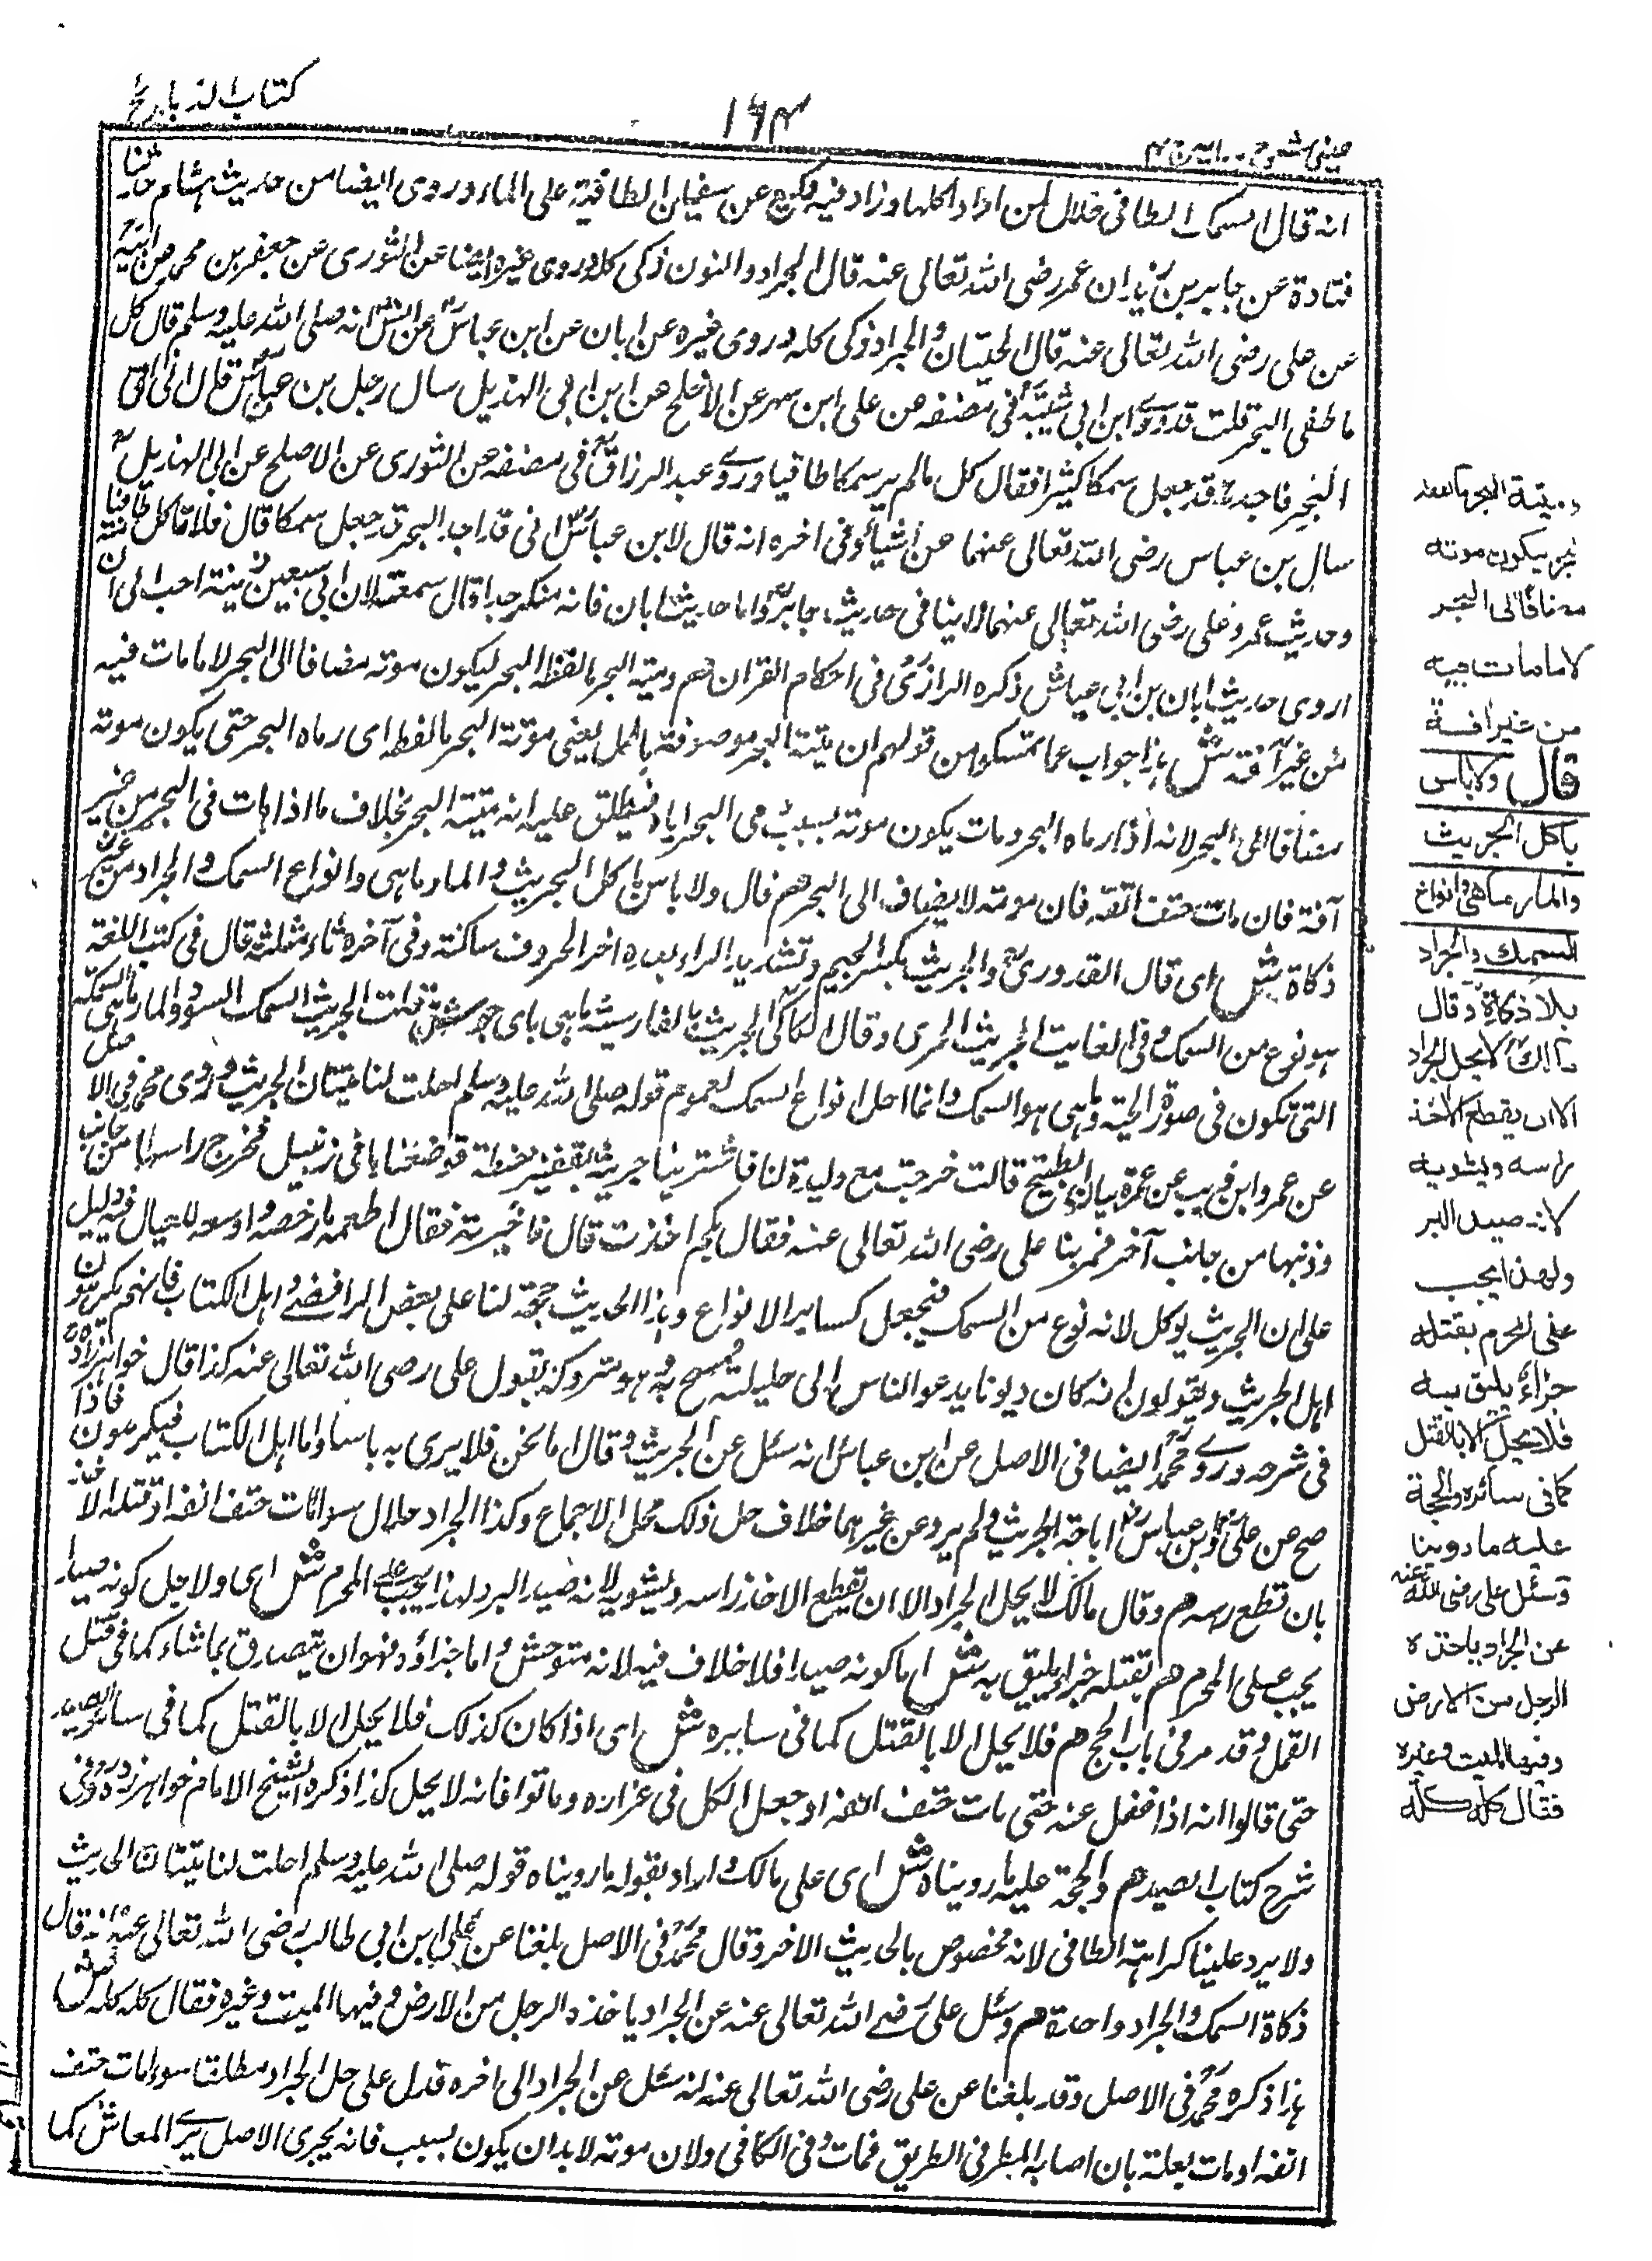 كتاب الذبائح
١٦٣
عيني شرح
انه قال السمك الطافي حلال لمن اراد اكلها وزاد فيه وكيع عن سفيان الطافية على الماء وروى ايضا من حديث هشام حدثنا
قتادة عن جابر بن زيد ان عمر رضى الله تعالى عنه قال الجراد والنون ذكى كله وروى غيره ايضا عن الثورى عن جعفر بن محمد عن ابيه
عن على رضى الله تعالى عنه قال الحيتان والجراد ذكى كله وروى غيره عن ابان عن ابن عباس عن انس انه صلى الله عليه وسلم قال كل
ما طفى البحر قلت قد روى ابن ابى شيبة فى مصنفه عن على ابن مسهر عن الاجلح عن ابن ابى الهذيل سال رجل بن عباس قال انى اتى
البحر فاجده قد جعل سمكا كثيرا فقال كل مالم ير سمكا طافيا وروى عبد الرزاق فى مصنفه عن الثورى عن الاصلح عن ابى الهذيل
سال بن عباس رضى الله تعالى عنهما عن اشياء وفى اخره انه قال لابن عباس انى قد اجد البحر قد جعل سمكا قال فلا تاكل طافيا
وحديث عمر وعلى رضى الله تعالى عنهما لاينافى حديث جابر واما حديث ابان فانه منكر جدا وقال سمعت لان ابى سبعين ينته احب الى ان
اروى حديث ابان بن ابى عياش ذكره الرازى فى احكام القران هم وميتة البحر ما لفظه البحر ليكون موته مضافا الى البحر لا ما مات فيه
من غير آفة ش هذا جواب عما تمسكوا من قولهم ان ميتة البحر موصوفة بالحل يعنى موتة البحر ما لفظه اى رماه البحر حتى يكون موته
مضافا الى البحر لانه اذا رماه البحر ومات يكون موته بسبب رمى البحر اياه فيطلق عليه انه ميتة البحر بخلاف ما اذا مات فى البحر من غير
آفة فان مات حتف انفه فان موته لا يضاف الى البحر هم قال ولا باس باكل الجريث والمار ماهى وانواع السمك والجراد من غير
ذكاة ش اى قال القدورى والجريث بكسر الجيم وتشديد الراء بعده اخر الحروف ساكنة وفى آخره ثاء مثلثة قال فى كتب اللغة
هو نوع من السمك وفى الغايت الجريث الجرى وقال الكاكى الجريث بالفارسية ماهى باى قلت الجريث السمك السود والمار ماهى السمكة
التى تكون فى صورة الحية وماهى هو السمك وانما احل انواع السمك لعموم قوله صلى الله عليه وسلم احلت لنا ميتتان الحديث وروى محمد فى الاصل
عن عمرو ابن عن عمرة الطبيخ قالت خرجت مع وليدة لنا فاشترينا جريثة بقفيز حنطة فوضعناها فى زنبيل فخرج راسها من جانب
وذنبها من جانب آخر فمر بنا على رضى الله تعالى عنه فقال بكم اخذت قال فاخبرته فقال اطعمه ما رخصه واوسعه للعيال فيه دليل
على ان الجريث يوكل لانه نوع من السمك فيجعل كساير الانواع وهذا الحديث حجة لنا على بعض الرافضة واهل الكتاب فانهم يكرهون
اهل الجريث ويقولون انه كان ديوثا يدعو الناس الى حليلته فمسخ به وهو متروك بقول على رضى الله تعالى عنه كذا قال خواهر زاده
فى شرحه وروى محمد ايضا فى الاصل عن ابن عباس انه سئل عن الجريث وقال اما نحن فلا يرى به باسا واما اهل الكتاب فيكرهون فاذا
صح عن على وابن عباس اباحة الجريث ولم يرو عن غيرهما خلاف حل ذلك محل الاجماع وكذا الجراد حلال سواء مات حتف انفه او قتله الاخذ
بان قطع راسه هم وقال مالك لا يحل الجراد الا ان يقطع الاخذ راسه ويشويه لانه صيد البر ولهذا يجب على المحرم ش اى ولاجل كونه صيدا
يجب على المحرم هم بقتله جزاء يليق به ش اما كونه صيدا فلا خلاف فيه لانه متوحش واما جزاؤه فهو ان يتصدق بما شاء كما فى قتل
القمل وقد مر فى باب الحج هم فلا يحل الا بالقتل كما فى سايره ش اى اذا كان كذلك فلا يحل الا بالقتل كما فى سائر الصيد
حتى قالوا انه اذا غفل عنه حتى مات حتف انفه او جعل الكل فى غراره وماتوا فانه لا يحل كذا ذكره الشيخ الامام خواهر زاده فى
شرح كتاب الصيد هم والحجة عليه ما رويناه ش اى على مالك واراد بقوله ما رويناه قوله صلى الله عليه وسلم احلت لنا ميتتان الحديث
ولا يرد علينا كراهة الطافى لانه مخصوص بالحديث الاخر وقال محمد فى الاصل بلغنا عن على ابن ابى طالب رضى الله تعالى عنه انه قال
ذكاة السمك والجراد واحدة هم وسئل على رضى الله تعالى عنه عن الجراد ياخذه الرجل من الارض وفيها الميت وغيره فقال كله كله ش
هذا ذكره محمد فى الاصل وقد بلغنا عن على رضى الله تعالى عنه انه سئل عن الجراد الى اخره فدل على حل الجراد مطلقا سواء مات حتف
انفه او مات بعلة بان اصابه المطر فى الطريق فمات وفى الكافى ولان موته لابد ان يكون بسبب فانه بحرى الاصل برى المعاش كما
وميتة البحر ما لفظه
البحر ليكون موته
مضافا الى البحر
لا ما مات فيه
من غير افة
قال ولا باس
باكل الجريث
والمار ماهى وانواع
السمك والجراد
بلا ذكاة وقال
مالك لا يحل الجراد
الا ان يقطع الاخذ
راسه ويشويه
لانه صيد البر
ولهذا يجب
على المحرم بقتله
جزاء يليق به
فلا يحل الا بالقتل
كما فى سائره والحجة
عليه ما روينا
وسئل على رضى الله عنه
عن الجراد ياخذه
الرجل من الارض
وفيها الميت وغيره
فقال كله كله